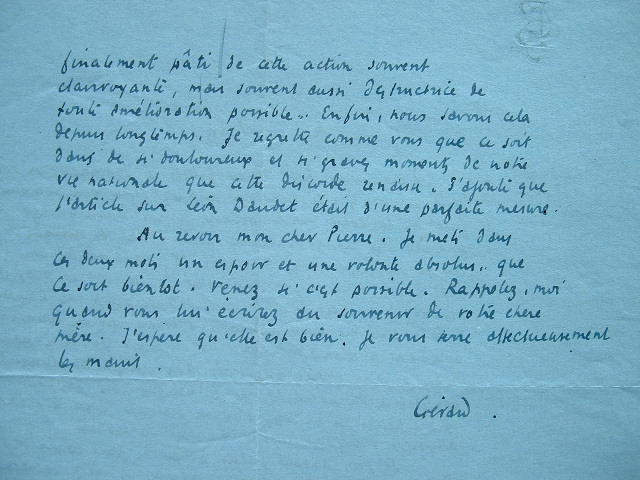 finalement pâti de cette action souvent
clairvoyante, mais souvent aussi destructrice de
toute amélioration possible... Enfin, nous savons cela
depuis longtemps. Je regrette comme vous que ce soit
dans de si douloureux et si graves moments de notre
vie nationale que cette discorde renaisse. J'ajoute que
l'article sur Léon Daudet était d'une parfaite mesure.
Au revoir mon cher Pierre. Je mets dans
ces deux mots un espoir et une volonté absolus.. que
ce soit bientôt. Venez si c'est possible. Rappelez-moi
quand vous lui écrirez au souvenir de votre chère
mère. J'espère qu'elle est bien. Je vous serre affectueusement
les mains.
Gérard.